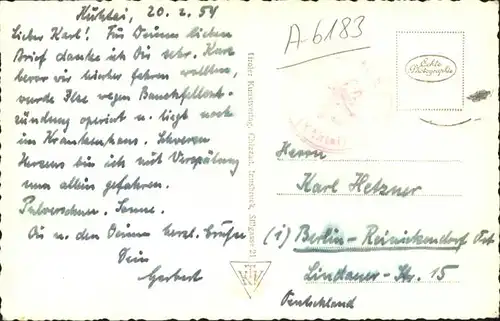 Kühtai, 20.2.54
Lieber Karl! Für Deinen lieben
Brief danke ich Dir sehr. Kurz
bevor wir hierher fahren wollten,
wurde Ilse wegen Bauchfellent-
zündung operiert u. liegt noch
im Krankenhaus. Schweren
Herzens bin ich mit Verspätung
nun allein gefahren.
Pulverschnee, Sonne.
Dir u. den Deinen herzl. Grüße
Dein
Gerbert
Tiroler Kunstverlag, Chizzali, Innsbruck, Stiftgasse 21
A-6183
Echte
Photographie
Herrn
Karl Hetzner
(1) Berlin-Reinickendorf Ost
Lindauer-Str. 15
Deutschland